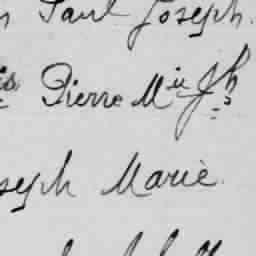 Paul Joseph.
is Pierre Mie Jh
seph Marie